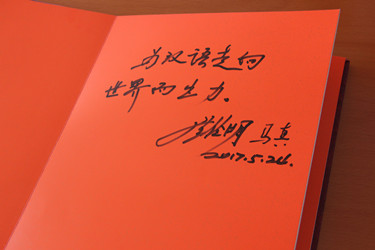 为汉语走向
世界而出力。
陆俭明 马真
2017.5.24.